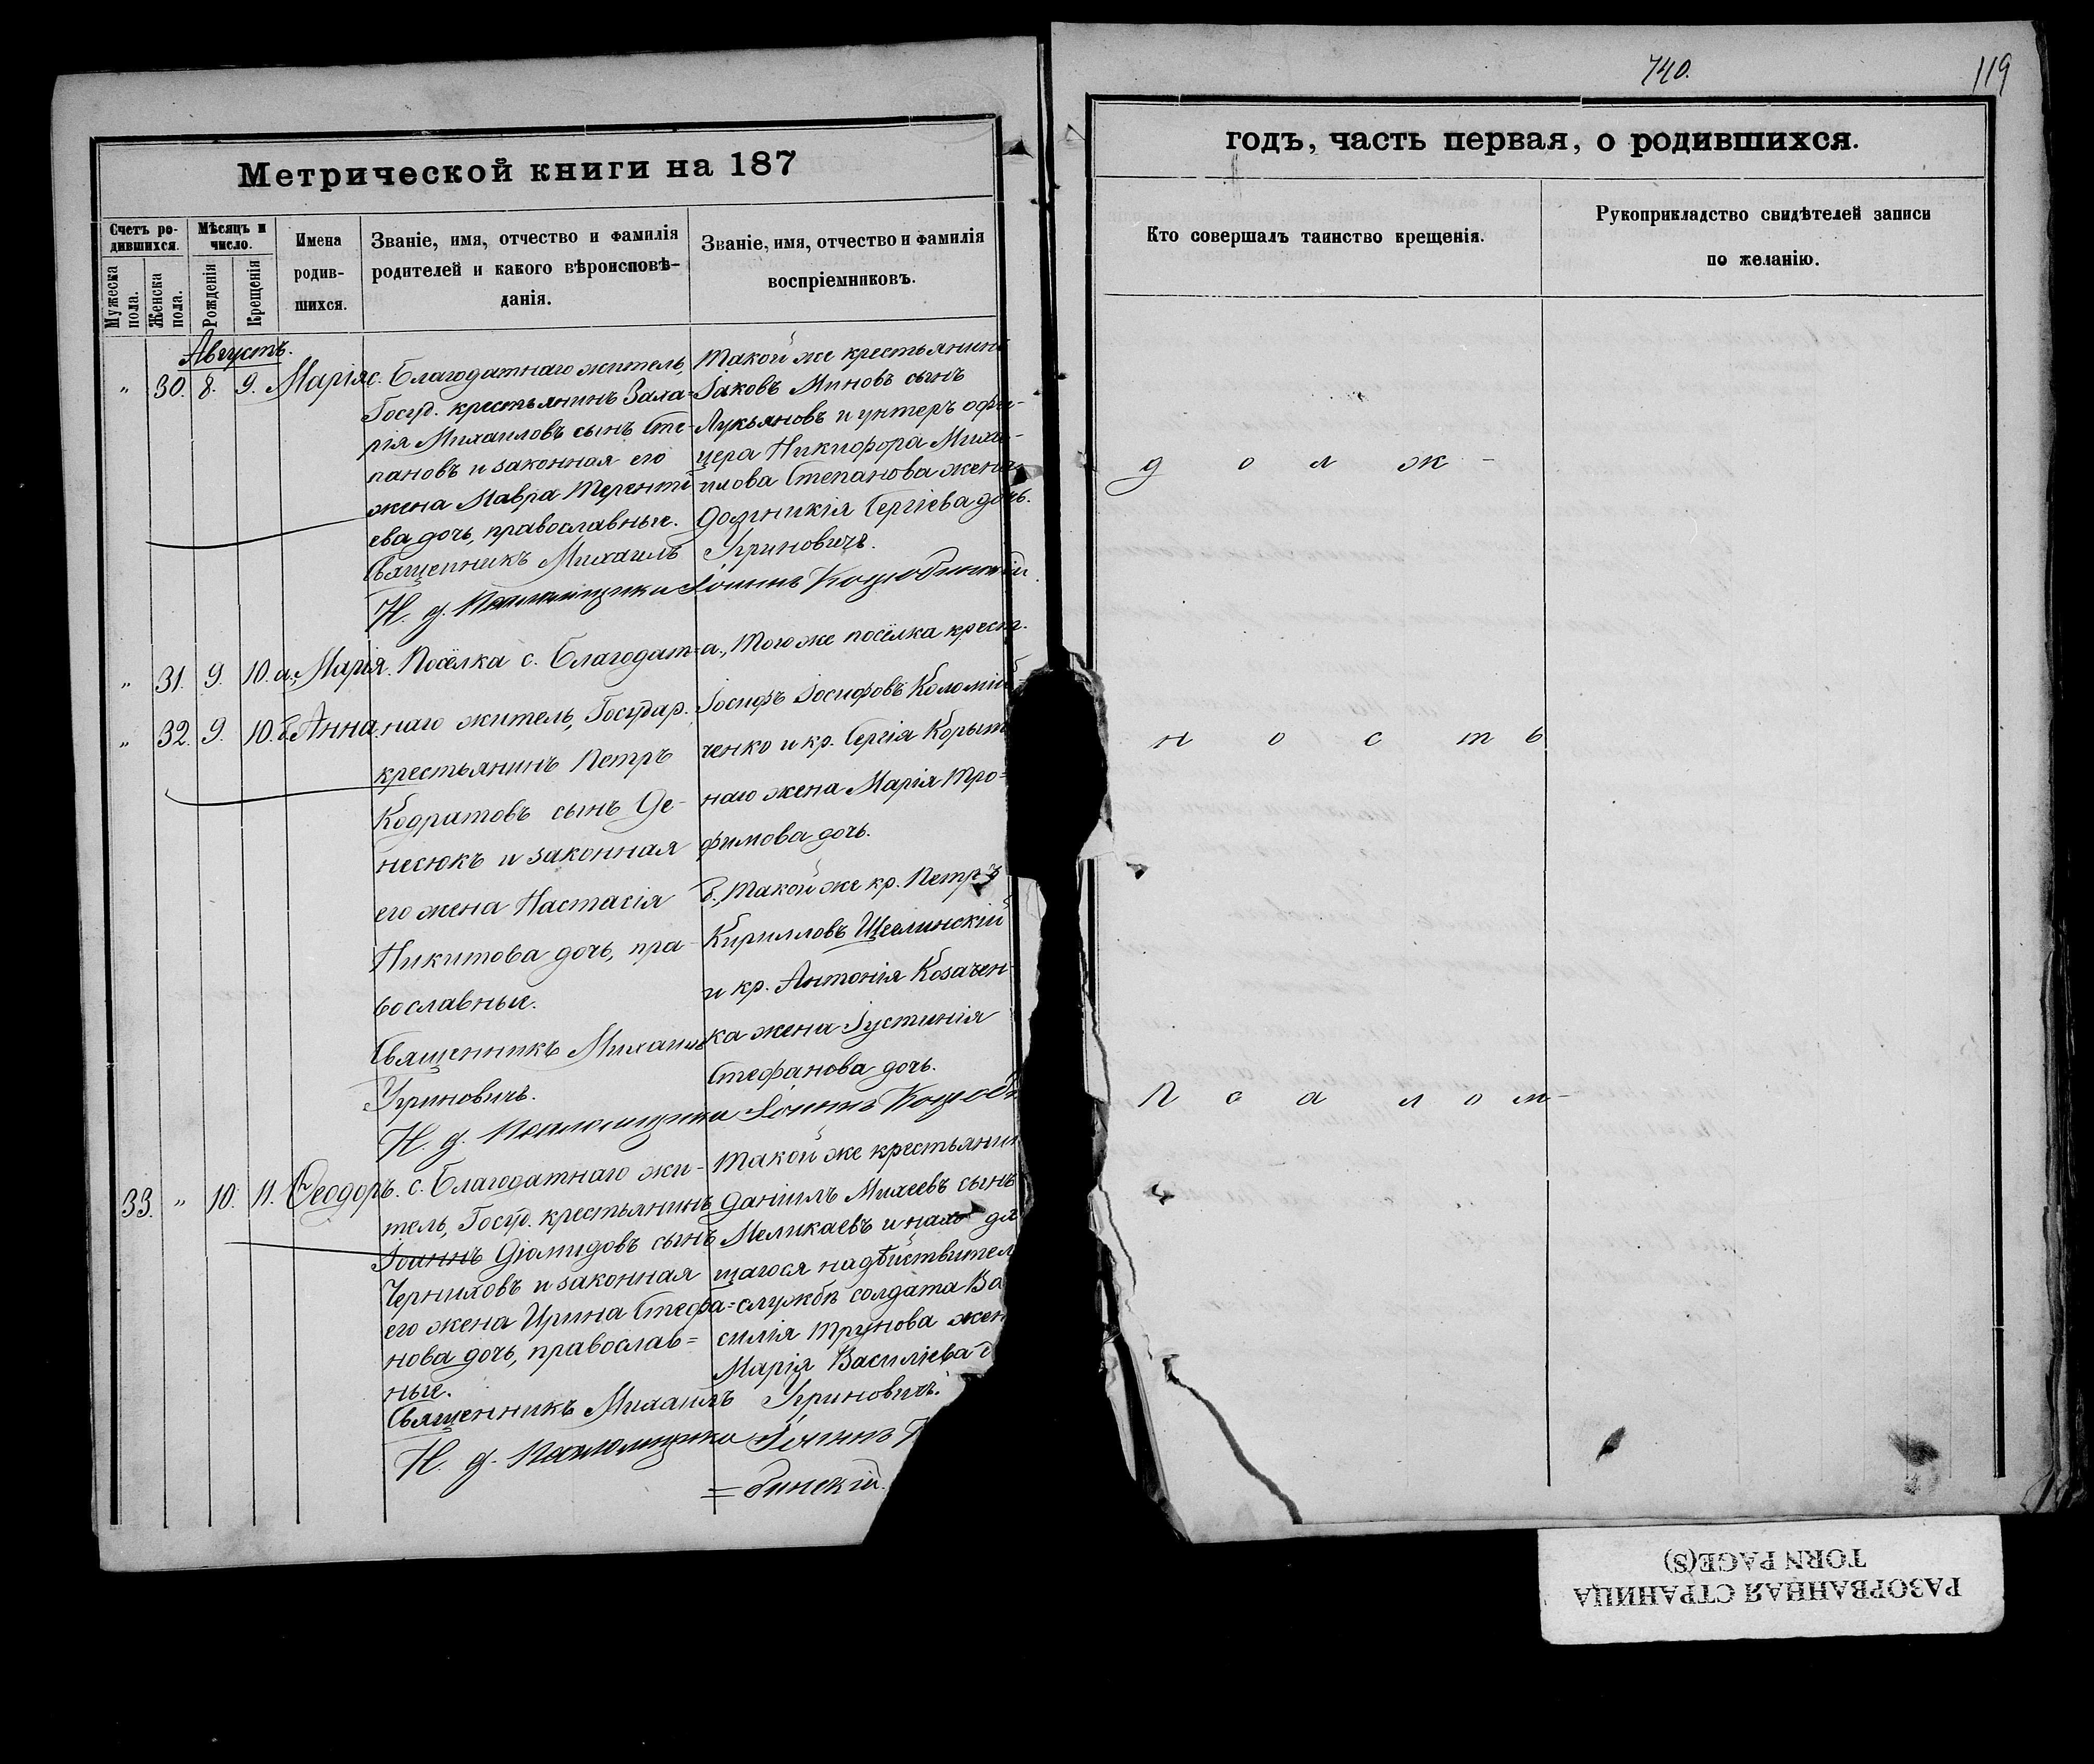 740.
119
Метрической книги на 187
годъ, часть первая, о родившихся.
Счетъ ро-
дившихся.
Мѣсяцъ и
число.
Имена
родив-
шихся.
Званіе, имя, отчество и фамилія
родителей и какого вѣроисповѣ-
данія.
Званіе, имя, отчество и фамилія
воспріемниковъ.
Мужеска
пола.
Женска
пола.
Рожденія
Крещенія
Кто совершалъ таинство крещенія.
Рукоприкладство свидѣтелей записи
по желанію.
Августъ.
" 30. 8. 9. Марія
с. Благодатнаго житель,
Госуд. крестьянинъ Заха-
рія Михаиловъ сынъ Сте-
пановъ и законная его
жена Мавра Теренті
ева дочь, православные.
Такой же крестьянинъ
Іаковъ Миновъ сынъ
Лукьяновъ и унтеръ офи-
цера Никифора Миха-
илова Степанова жена
Домникія Сергіева дочь.
Священникъ Михаилъ Угриновичъ.
Н. д. Псаломщика Іоаннъ Коцюбинскій
" 31. 9. 10. а, Марія.
" 32. 9. 10. б Анна.
Посёлка с. Благодат-
наго житель, Государ.
крестьянинъ Петръ
Кодратовъ сынъ Де-
несюкъ и законная
его жена Настасія
Никитова дочь, пра-
вославные.
а, Того же посёлка крест.
Іосифъ Іосифовъ Коломій
ченко и кр. Сергія Корыт
наго жена Марія Тро-
фимова дочь.
б, Такой же кр. Петръ
Кирилловъ Щеглинскій
и кр. Антонія Козачен-
ка жена Іустинія
Стефанова дочь.
Священникъ Михаилъ
Угриновичъ.
Н. д. Псаломщика Іоаннъ Коцюб
33. " 10. 11. Ѳеодоръ.
с. Благодатнаго жи-
тель, Госуд. крестьянинъ
Іоаннъ Діомидовъ сынъ
Черниховъ и законная
его жена Ирина Стефа-
нова дочь, православ-
ные.
Такой же крестьянин
Даніилъ Михеевъ сынъ
Меликаевъ и
щагося на дѣйствител
службѣ солдата Ва
силія Трунова жен
Марія Василіева д
Священникъ Михаилъ Угриновичъ.
Н. д. Псаломщика Іоаннъ К
=бинскій.
д о л ж -
н о с т ь
П с а л о м -
РАЗОРВАННАЯ СТРАНИЦА
TORN PAGE(S)